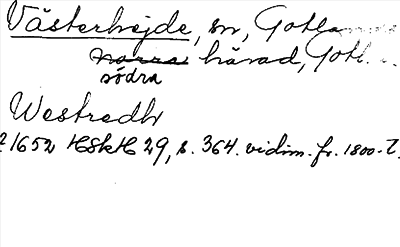 Västerhejde, sn, Gotlands
norra härad, Gotl.
södra
Westredh
1652 HSkH 29, s. 364. vidim. fr. 1800-t.